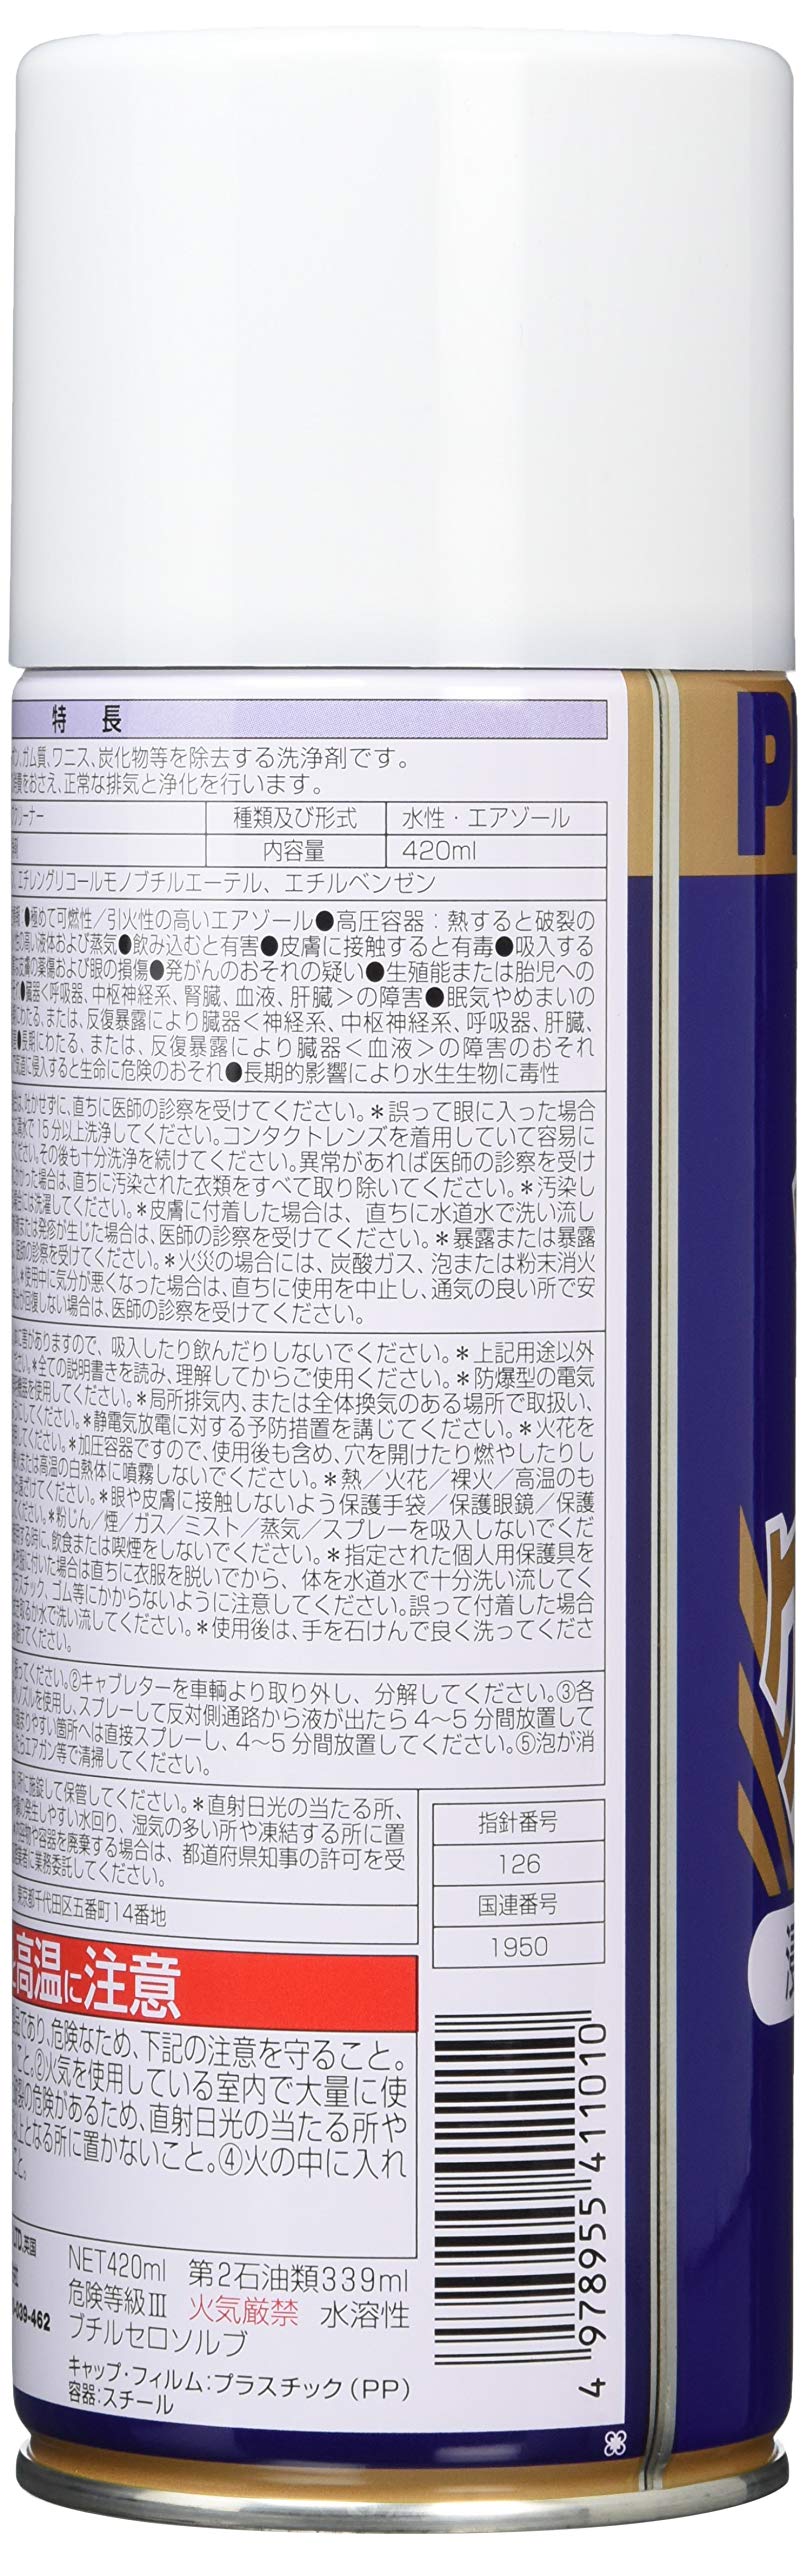 特 長
ガム質、ワニス、炭化物等を除去する洗浄剤です。
をおさえ、正常な排気と浄化を行います。
クリーナー 種類及び形式 水性・エアゾール
内容量 420ml
エチレングリコールモノブチルエーテル、エチルベンゼン
●極めて可燃性／引火性の高いエアゾール●高圧容器：熱すると破裂の
の高い液体および蒸気●飲み込むと有害●皮膚に接触すると有毒●吸入する
皮膚の薬傷および眼の損傷●発がんのおそれの疑い●生殖能または胎児への
●臓器＜呼吸器、中枢神経系、腎臓、血液、肝臓＞の障害●眠気やめまいの
にわたる、または、反復暴露により臓器＜神経系、中枢神経系、呼吸器、肝臓、
●長期にわたる、または、反復暴露により臓器＜血液＞の障害のおそれ
気道に侵入すると生命に危険のおそれ●長期的影響により水生生物に毒性
は、吐かせずに、直ちに医師の診察を受けてください。＊誤って眼に入った場合
清水で15分以上洗浄してください。コンタクトレンズを着用していて容易に
ください。その後も十分洗浄を続けてください。異常があれば医師の診察を受け
かかった場合は、直ちに汚染された衣類をすべて取り除いてください。＊汚染し
場合には洗濯してください。＊皮膚に付着した場合は、直ちに水道水で洗い流し
または発疹が生じた場合は、医師の診察を受けてください。＊暴露または暴露
医師の診察を受けてください。＊火災の場合には、炭酸ガス、泡または粉末消火
＊使用中に気分が悪くなった場合は、直ちに使用を中止し、通気の良い所で安
が回復しない場合は、医師の診察を受けてください。
害がありますので、吸入したり飲んだりしないでください。＊上記用途以外
さい。＊全ての説明書きを読み、理解してからご使用ください。＊防爆型の電気
機器を使用してください。＊局所排気内、または全体換気のある場所で取扱い、
にしてください。＊静電気放電に対する予防措置を講じてください。＊火花を
してください。＊加圧容器ですので、使用後も含め、穴を開けたり燃やしたりし
または高温の白熱体に噴霧しないでください。＊熱／火花／裸火／高温のも
遠ざけてください。＊眼や皮膚に接触しないよう保護手袋／保護眼鏡／保護
てください。＊粉じん／煙／ガス／ミスト／蒸気／スプレーを吸入しないでくだ
する時に、飲食または喫煙をしないでください。＊指定された個人用保護具を
に付いた場合は直ちに衣服を脱いでから、体を水道水で十分洗い流してく
プラスチック、ゴム等にかからないように注意してください。誤って付着した場合
取るか水で洗い流してください。＊使用後は、手を石けんで良く洗ってくださ
けてください。
ってください。②キャブレターを車輌より取り外し、分解してください。③各
ノズルを使用し、スプレーして反対側通路から液が出たら4〜5分間放置して
まりやすい箇所へは直接スプレーし、4〜5分間放置してください。⑤泡が消
らエアガン等で清掃してください。
所に施錠して保管してください。＊直射日光の当たる所、
発生しやすい水回り、湿気の多い所や凍結する所に置
や容器を廃棄する場合は、都道府県知事の許可を受
業者に業務委託してください。
東京都千代田区五番町14番地
指針番号
126
国連番号
1950
高温に注意
であり、危険なため、下記の注意を守ること。
こと。②火気を使用している室内で大量に使
の危険があるため、直射日光の当たる所や
以上となる所に置かないこと。④火の中に入れ
こと。
LTD.英国
-039-462
NET420ml 第2石油類339ml
危険等級Ⅲ 火気厳禁 水溶性
ブチルセロソルブ
キャップ・フィルム：プラスチック（PP）
容器：スチール
4 978955 411010